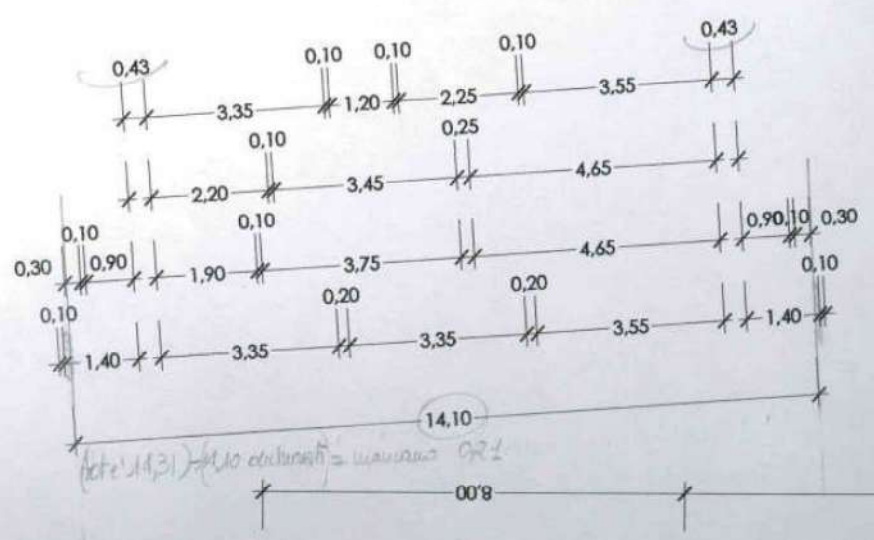 0,43 0,10 0,10 0,10 0,43
3,35 1,20 2,25 3,55
0,10 0,25
2,20 3,45 4,65
0,10 0,10 0,90 0,10 0,30
0,30 0,90 1,90 3,75 4,65
0,10 0,20 0,20 0,10
1,40 3,35 3,35 3,55 1,40
14,10
8,00